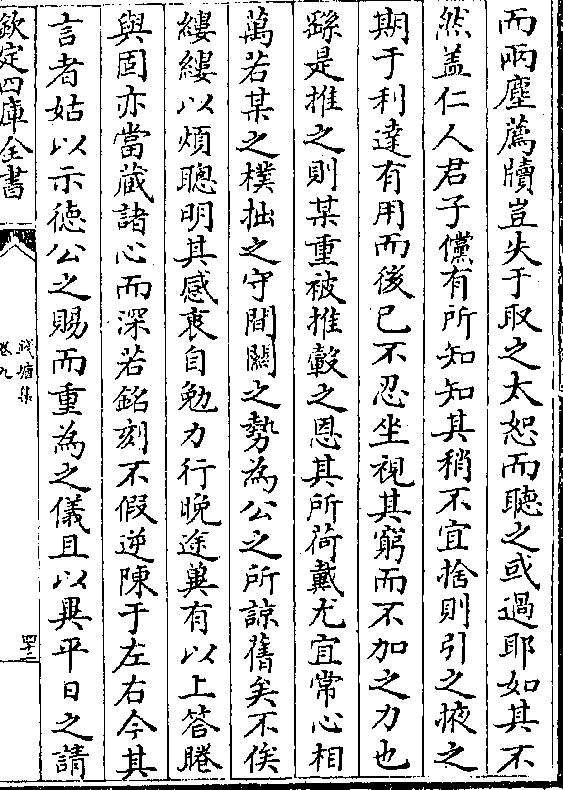 而兩塵薦牘豈失于取之太恕而聽之或過耶如其不
然盖仁人君子儻有所知知其稍不宜捨則引之掖之
期于利達有用而後已不忍坐視其窮而不加之力也
繇是推之則某重被推轂之恩其所荷戴尤宜常心相
萬若某之樸拙之守間闊之勢為公之所諒舊矣不俟
縷縷以煩聰明其感衷自勉力行晚途兾有以上答睠
與固亦當藏諸心而深若銘刻不假逆陳于左右今其
言者姑以示徳公之賜而重為之儀且以異平日之請
欽定四庫全書
錢塘集
卷九